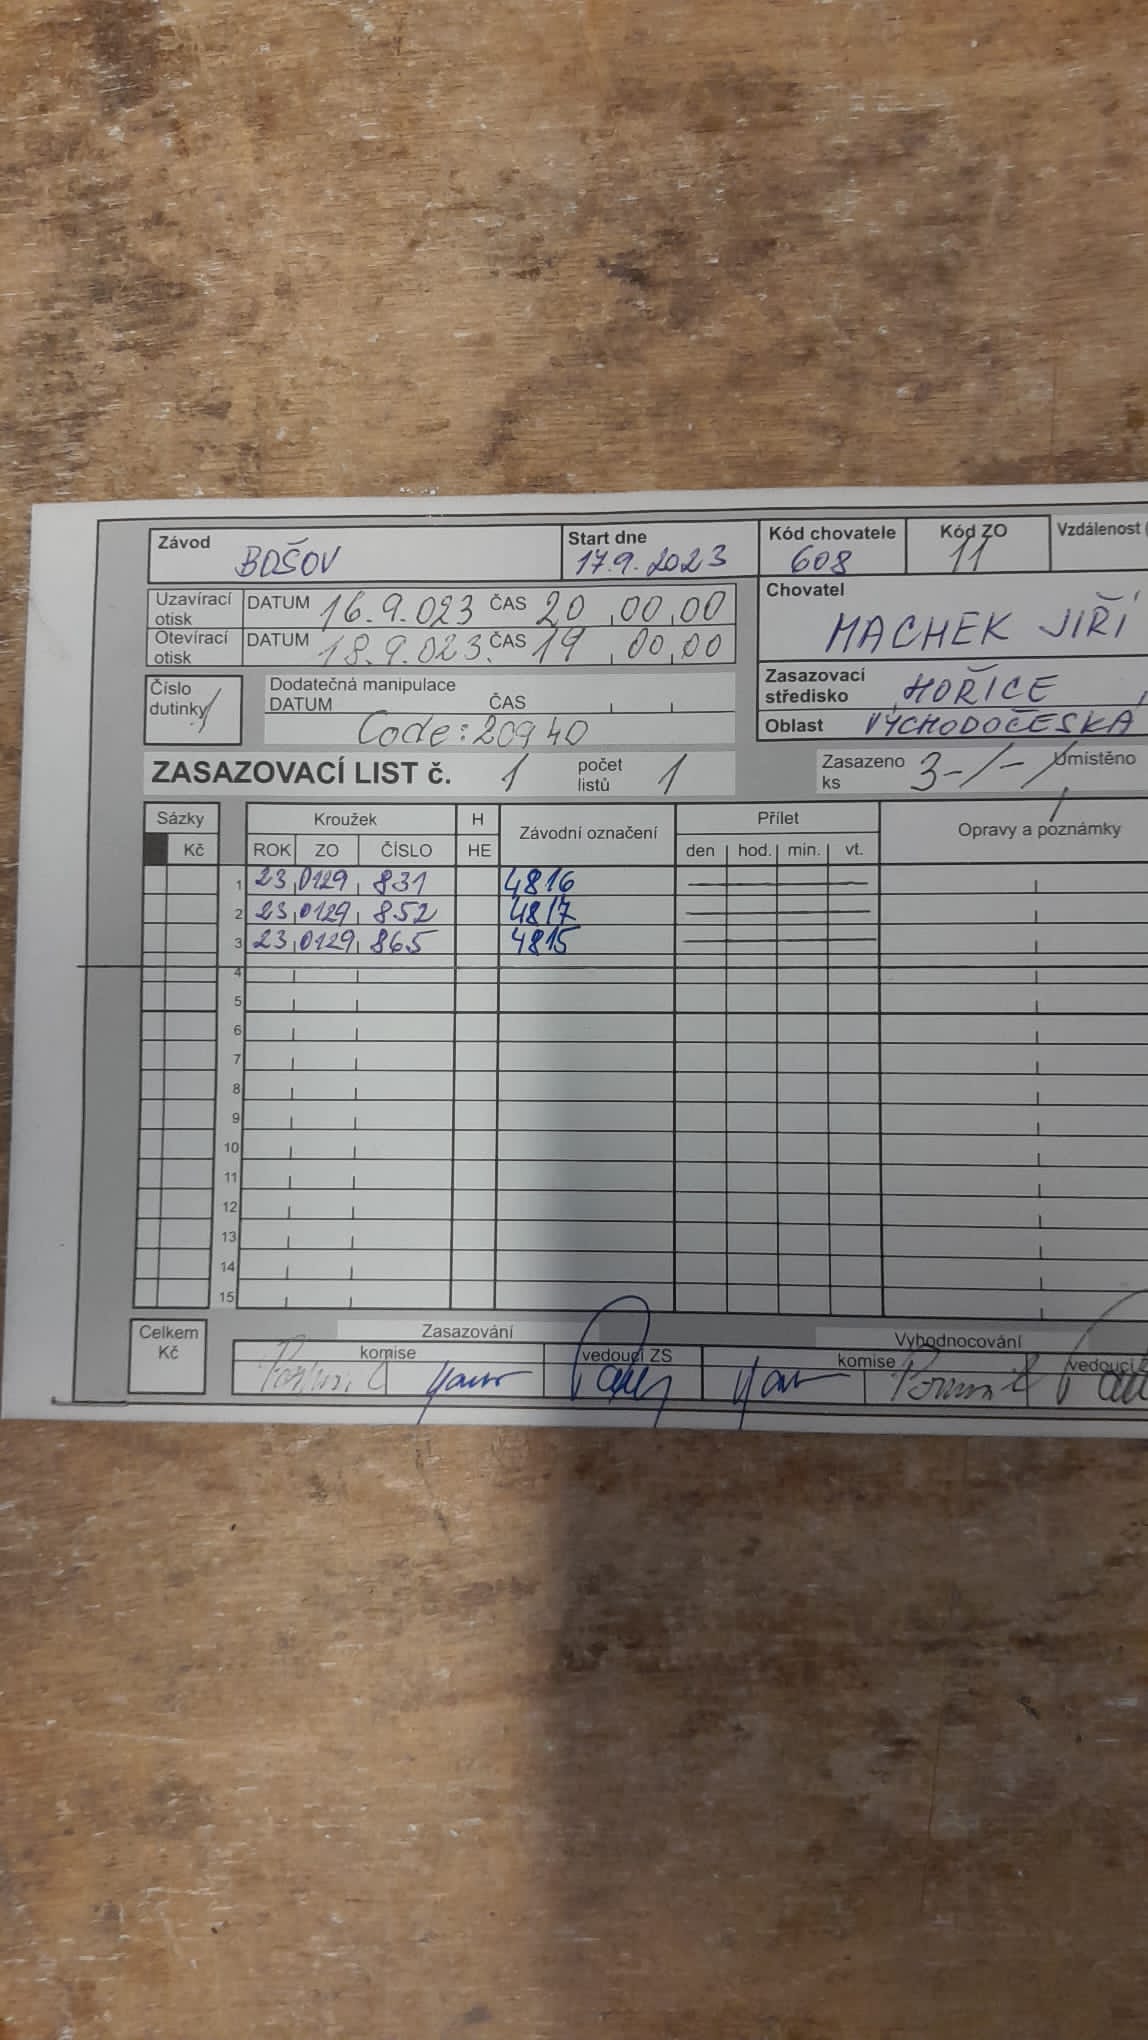 Závod BOŠOV Start dne 17.9.2023 Kód chovatele 608 Kód ZO 11 Vzdálenost
Uzavírací otisk DATUM 16.9.023 ČAS 20,00,00
Otevírací otisk DATUM 18.9.023. ČAS 19,00,00
Chovatel
MACHEK JIŘÍ
Číslo dutinky /
Dodatečná manipulace
DATUM ČAS
Code: 20940
Zasazovací středisko HOŘICE
Oblast VÝCHODOČESKÁ
ZASAZOVACÍ LIST č. 1 počet listů 1 Zasazeno ks 3-/-/ Umístěno /
Sázky Kroužek H Závodní označení Přílet Opravy a poznámky
Kč ROK ZO ČÍSLO HE den hod. min. vt.
1 23 0129 831 4816
2 23 0129 852 4817
3 23 0129 865 4815
4
5
6
7
8
9
10
11
12
13
14
15
Celkem Kč
Zasazování Vyhodnocování
komise vedoucí ZS komise vedoucí